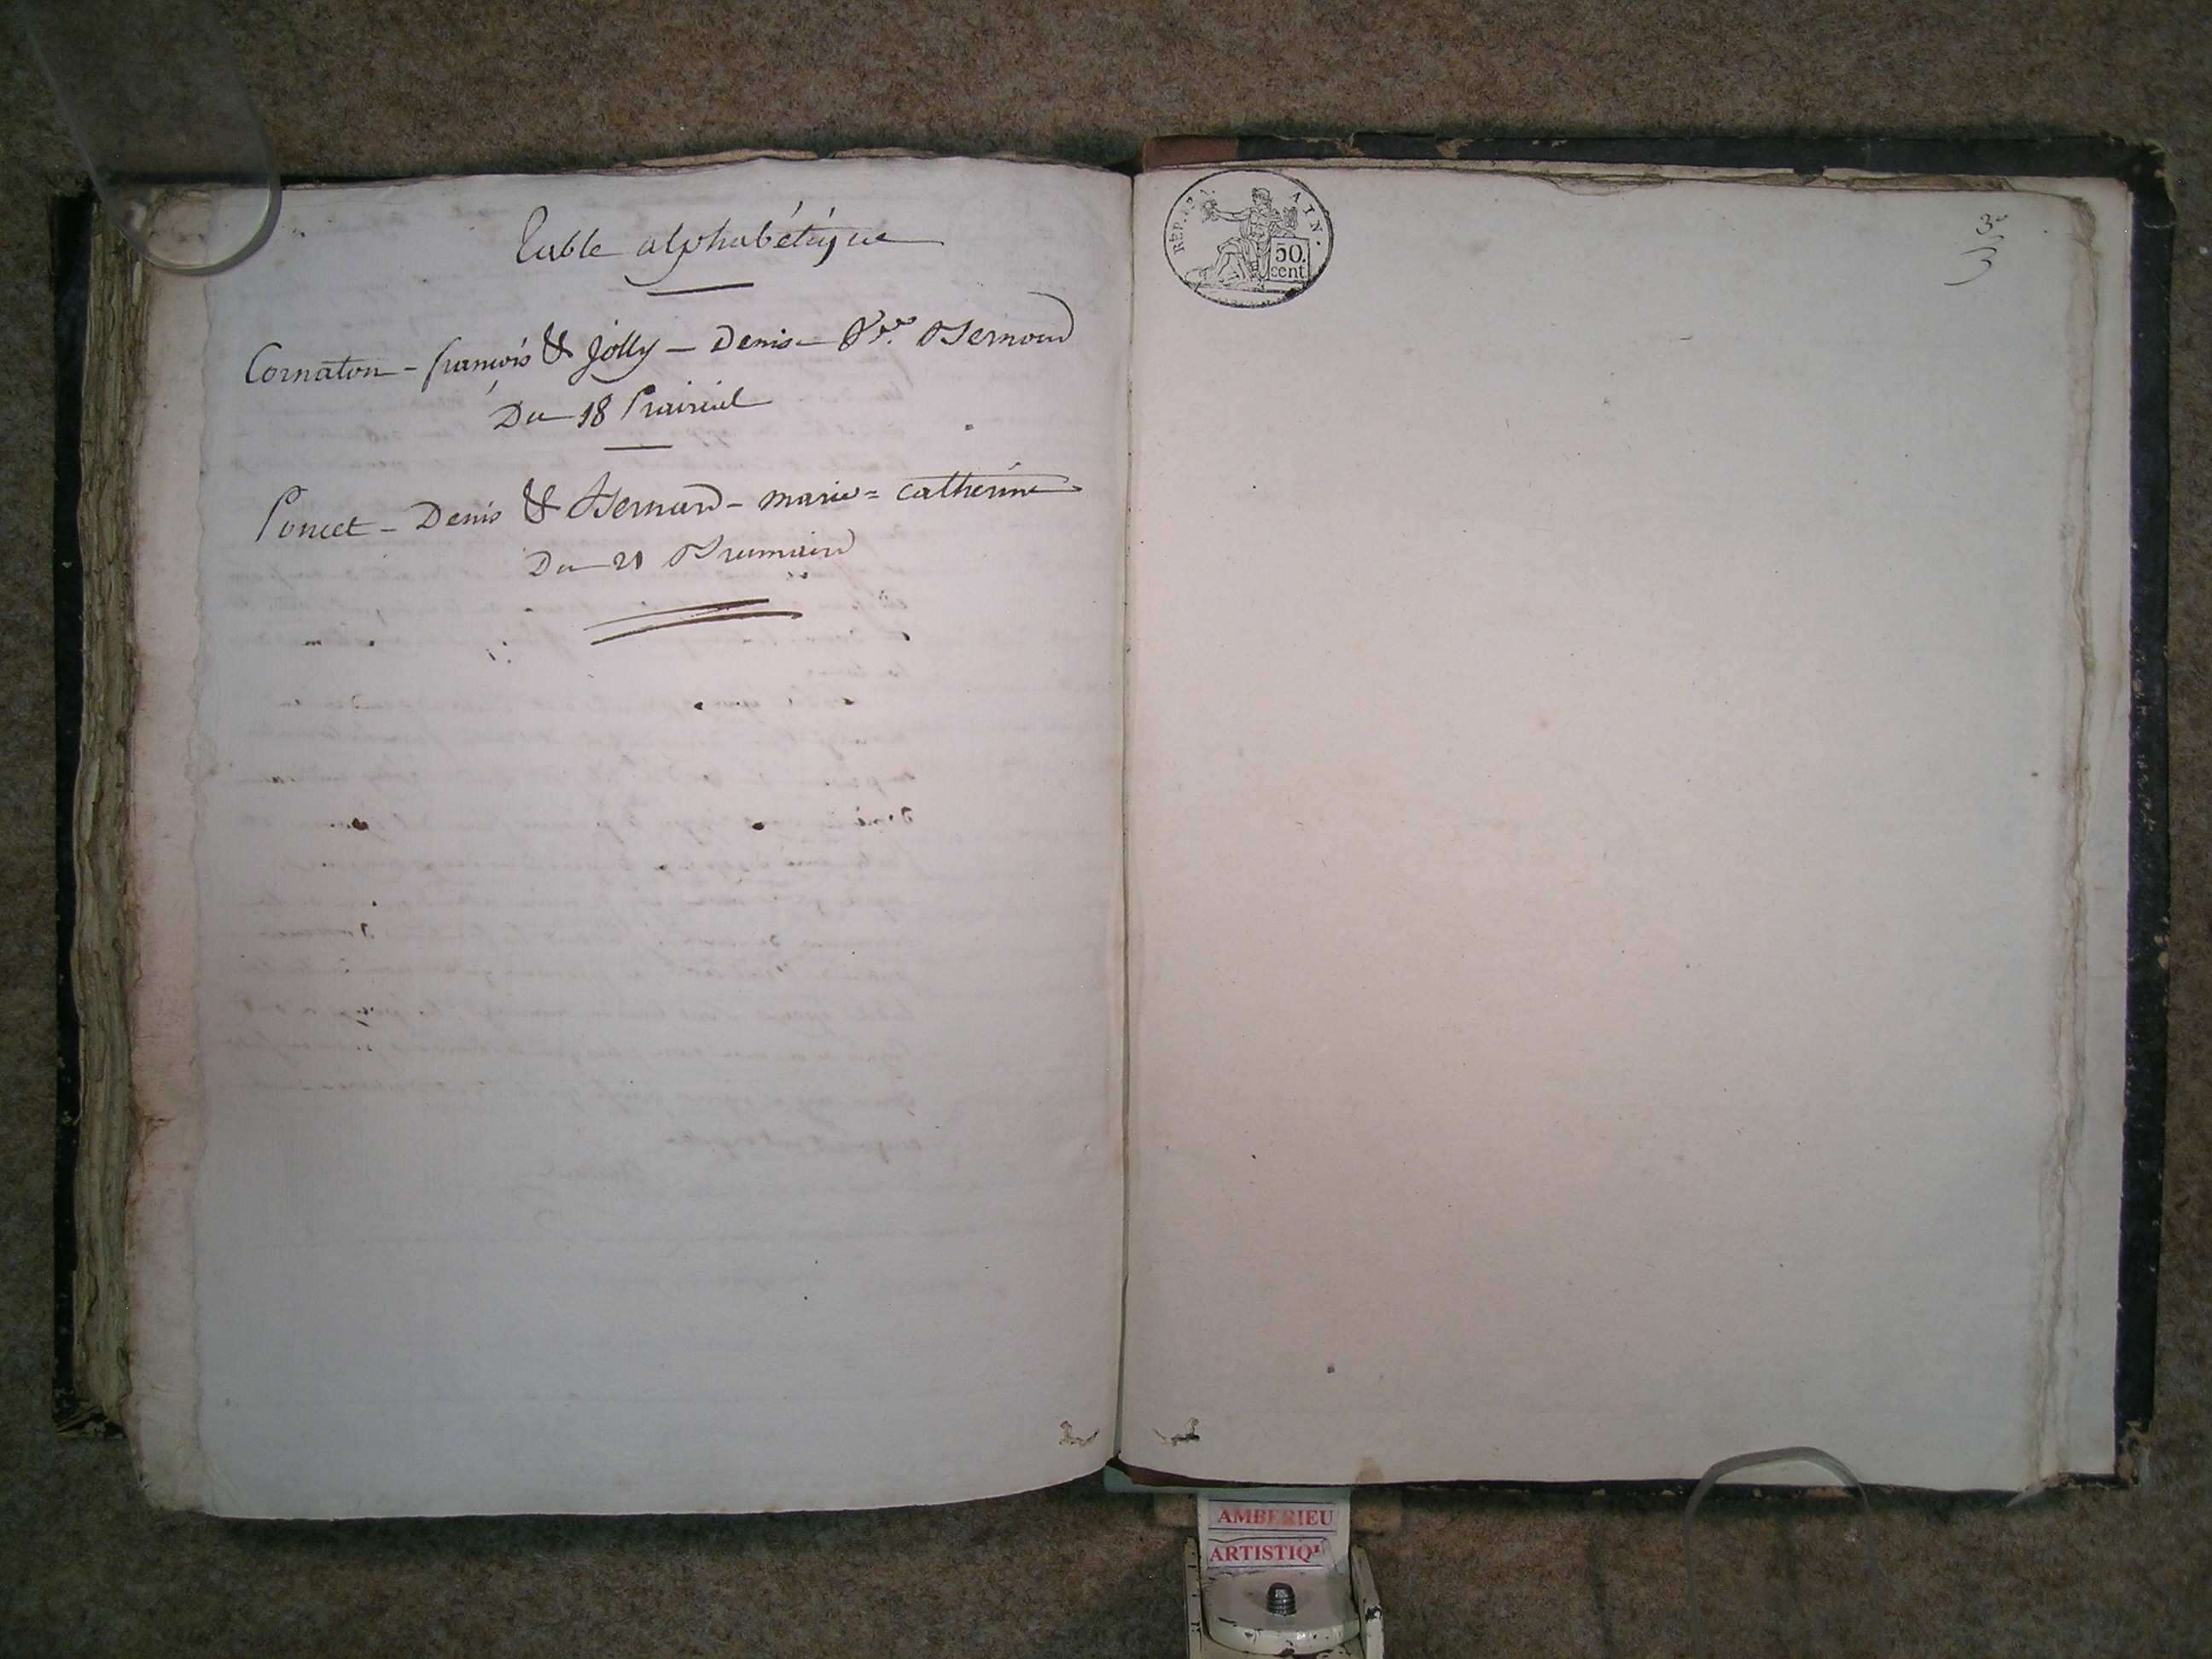 Table alphabétique
Cornaton - françois & Jolly - Denis - Vve Bernoud
Du 18 Prairial
Poncet - Denis & Bernard - marie = catherine
Du 21 Brumaire
REP. AIN.
50.
cent.
3e
AMBERIEU
ARTISTIQ